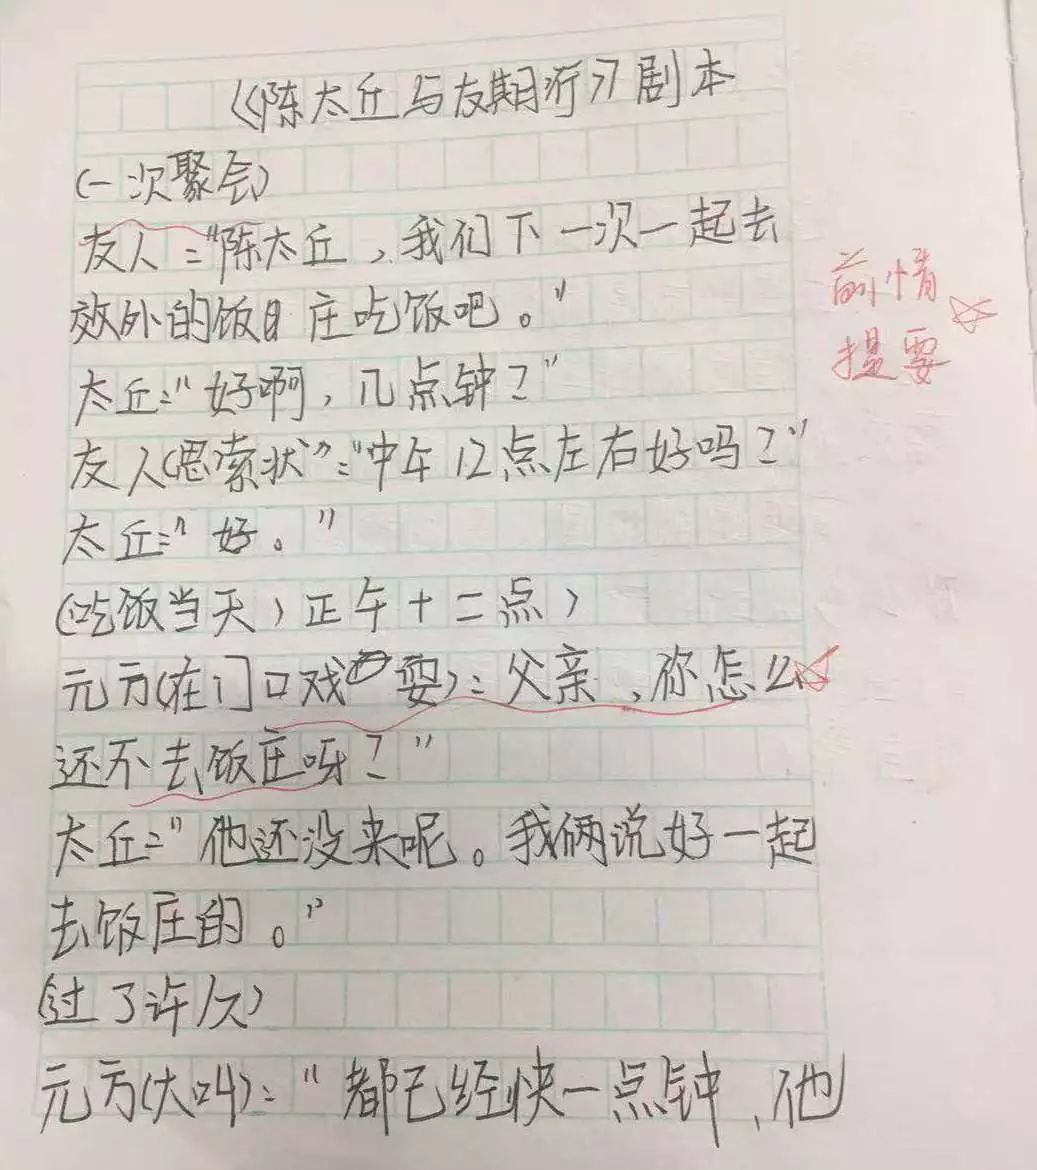 《陈太丘与友期行》剧本
(一次聚会)
友人:"陈太丘,我们下一次一起去
效外的饭 庄吃饭吧。"
前情
提要
太丘:"好啊,几点钟?"
友人(思索状):"中午12点左右好吗?"
太丘:"好。"
(吃饭当天,正午十二点)
元方(在门口戏 耍):父亲,你怎么
还不去饭庄呀?"
太丘:"他还没来呢。我俩说好一起
去饭庄的。"
(过了许久)
元方(大叫):"都已经快一点钟,他